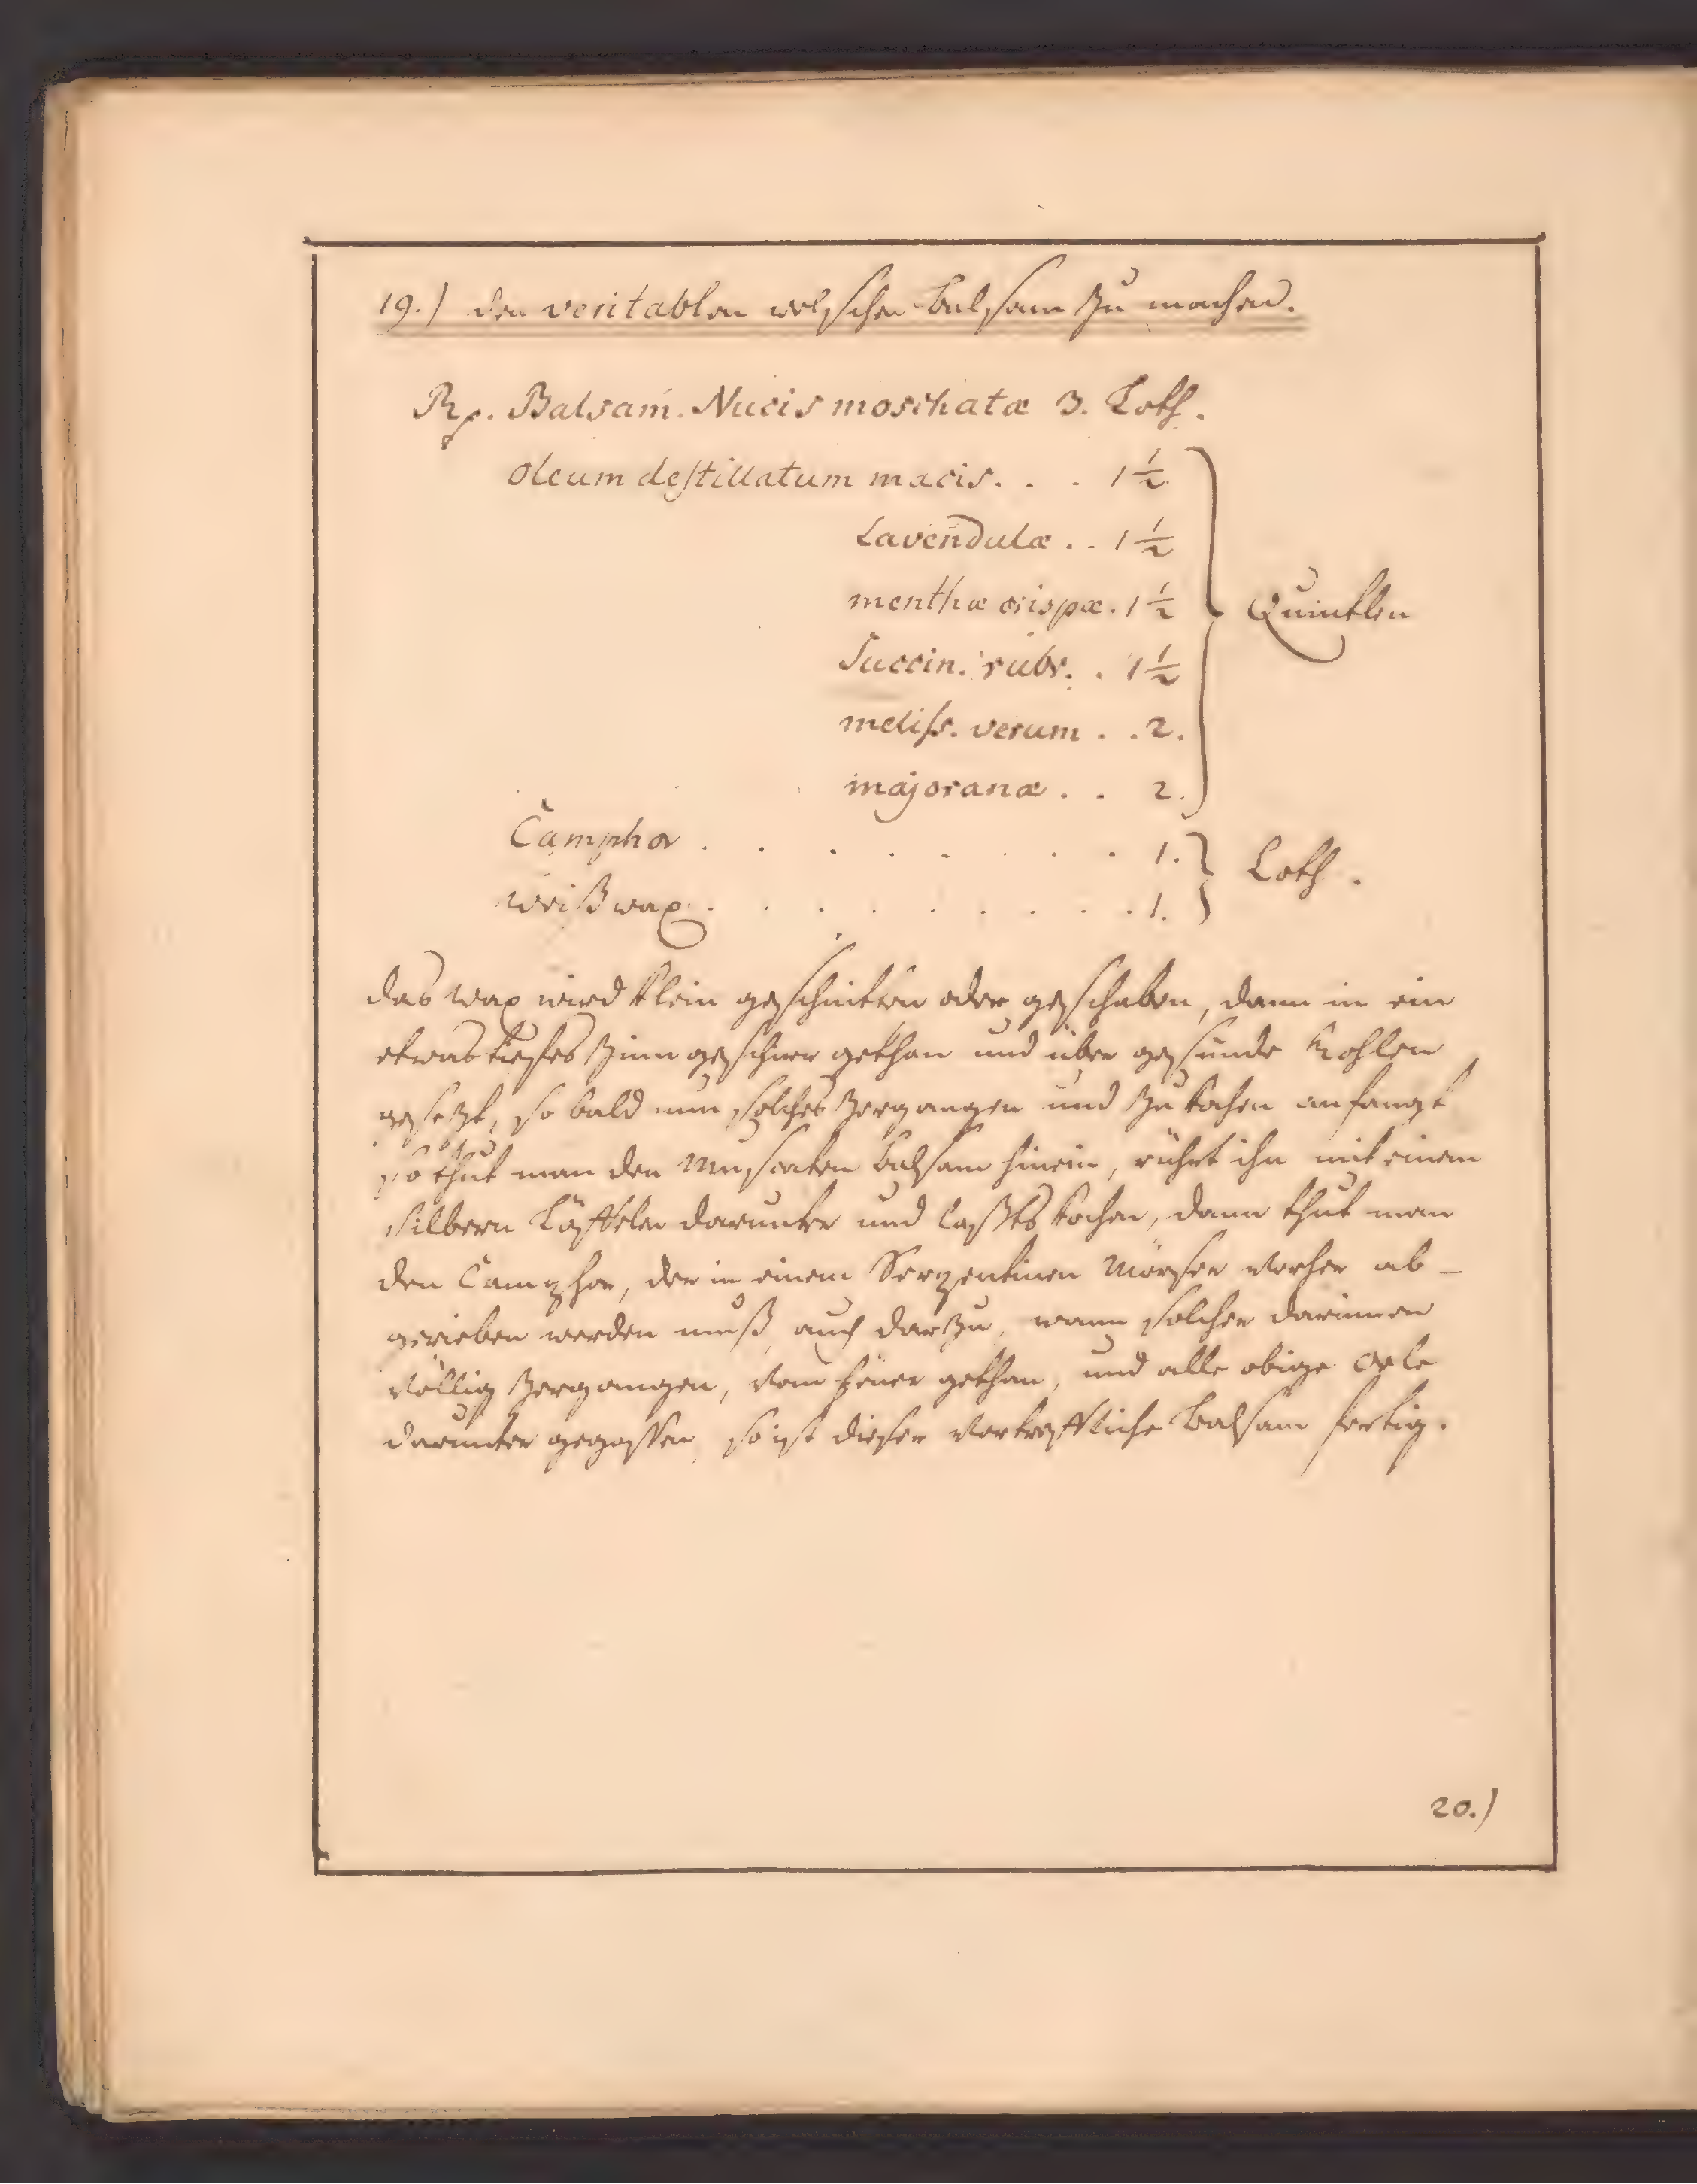 19.) den veritablen welschen Balsam zu machen.
Rp. Balsam. Nucis moschatæ 3. Loth.
Oleum destillatum macis. . . 1 1/2
Lavendulæ . . 1 1/2
menthæ crispæ. 1 1/2
Quintlen
Succin. rubr. . 1 1/2
meliss. verum . . 2.
majoranæ . . 2.
Camphor . . . . . . . . 1.
Loth.
weiß wax . . . . . . . . . 1.
das wax wird klein geschnitten oder geschaben, dann in ein
etwas tiefes Zinn geschirr gethan und über gesunde Kohlen
gesetzt, so bald nun solches zergangen und zu kochen anfangt
so thut man den Muscaten Balsam hinein, rührt ihn mit einem
silbern Löffelen darunter und laßts kochen, dann thut man
den Camphor, der in einem Serpentinen Mörser vorher ab-
gerieben werden muß, auch darzu, wann solcher darinnen
völlig zergangen, vom feuer gethan, und alle obige Oele
darunter gegossen, so ist dieser vortreffliche Balsam fertig.
20.)